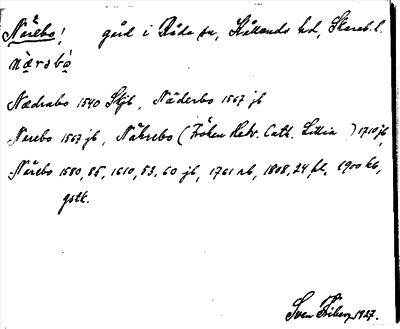 Närebo! gård i Råda sn, Kållands hd, Skarab. l.
närebo
Nædrabo 1540 Skjb, Näderbo 1567 jb
Nerebo 1567 jb, Nährebo (Fröken Hedv. Cath. Lillie) 1710 jb,
Närebo 1580, 85, 1610, 53, 60 jb, 1761 rb, 1808, 24 fl, 1900 kb,
gstk.
Sven Friberg 1927.